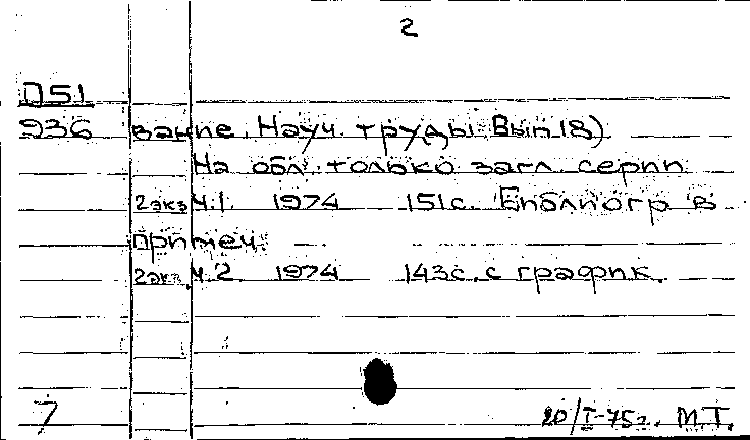 2
П51
936 вание. Науч. труды. Вып 18)
На обл. только загл. серии
2экз Ч.1. 1974 151с. Библиогр в
примеч.
2экз. Ч.2. 1974 143с. с график.
7 20/I-75г. М.Т.